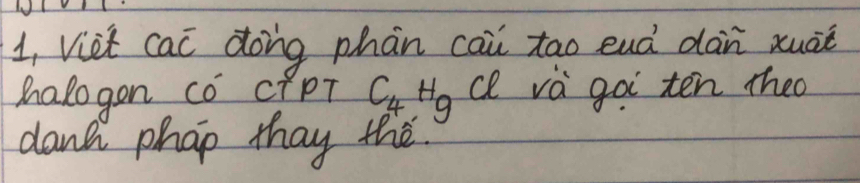 1, Viết các đồng phân cấu tạo của dẫn xuất
halogen có CTPT C₄H₉Cl và gọi tên theo
danh pháp thay thế.